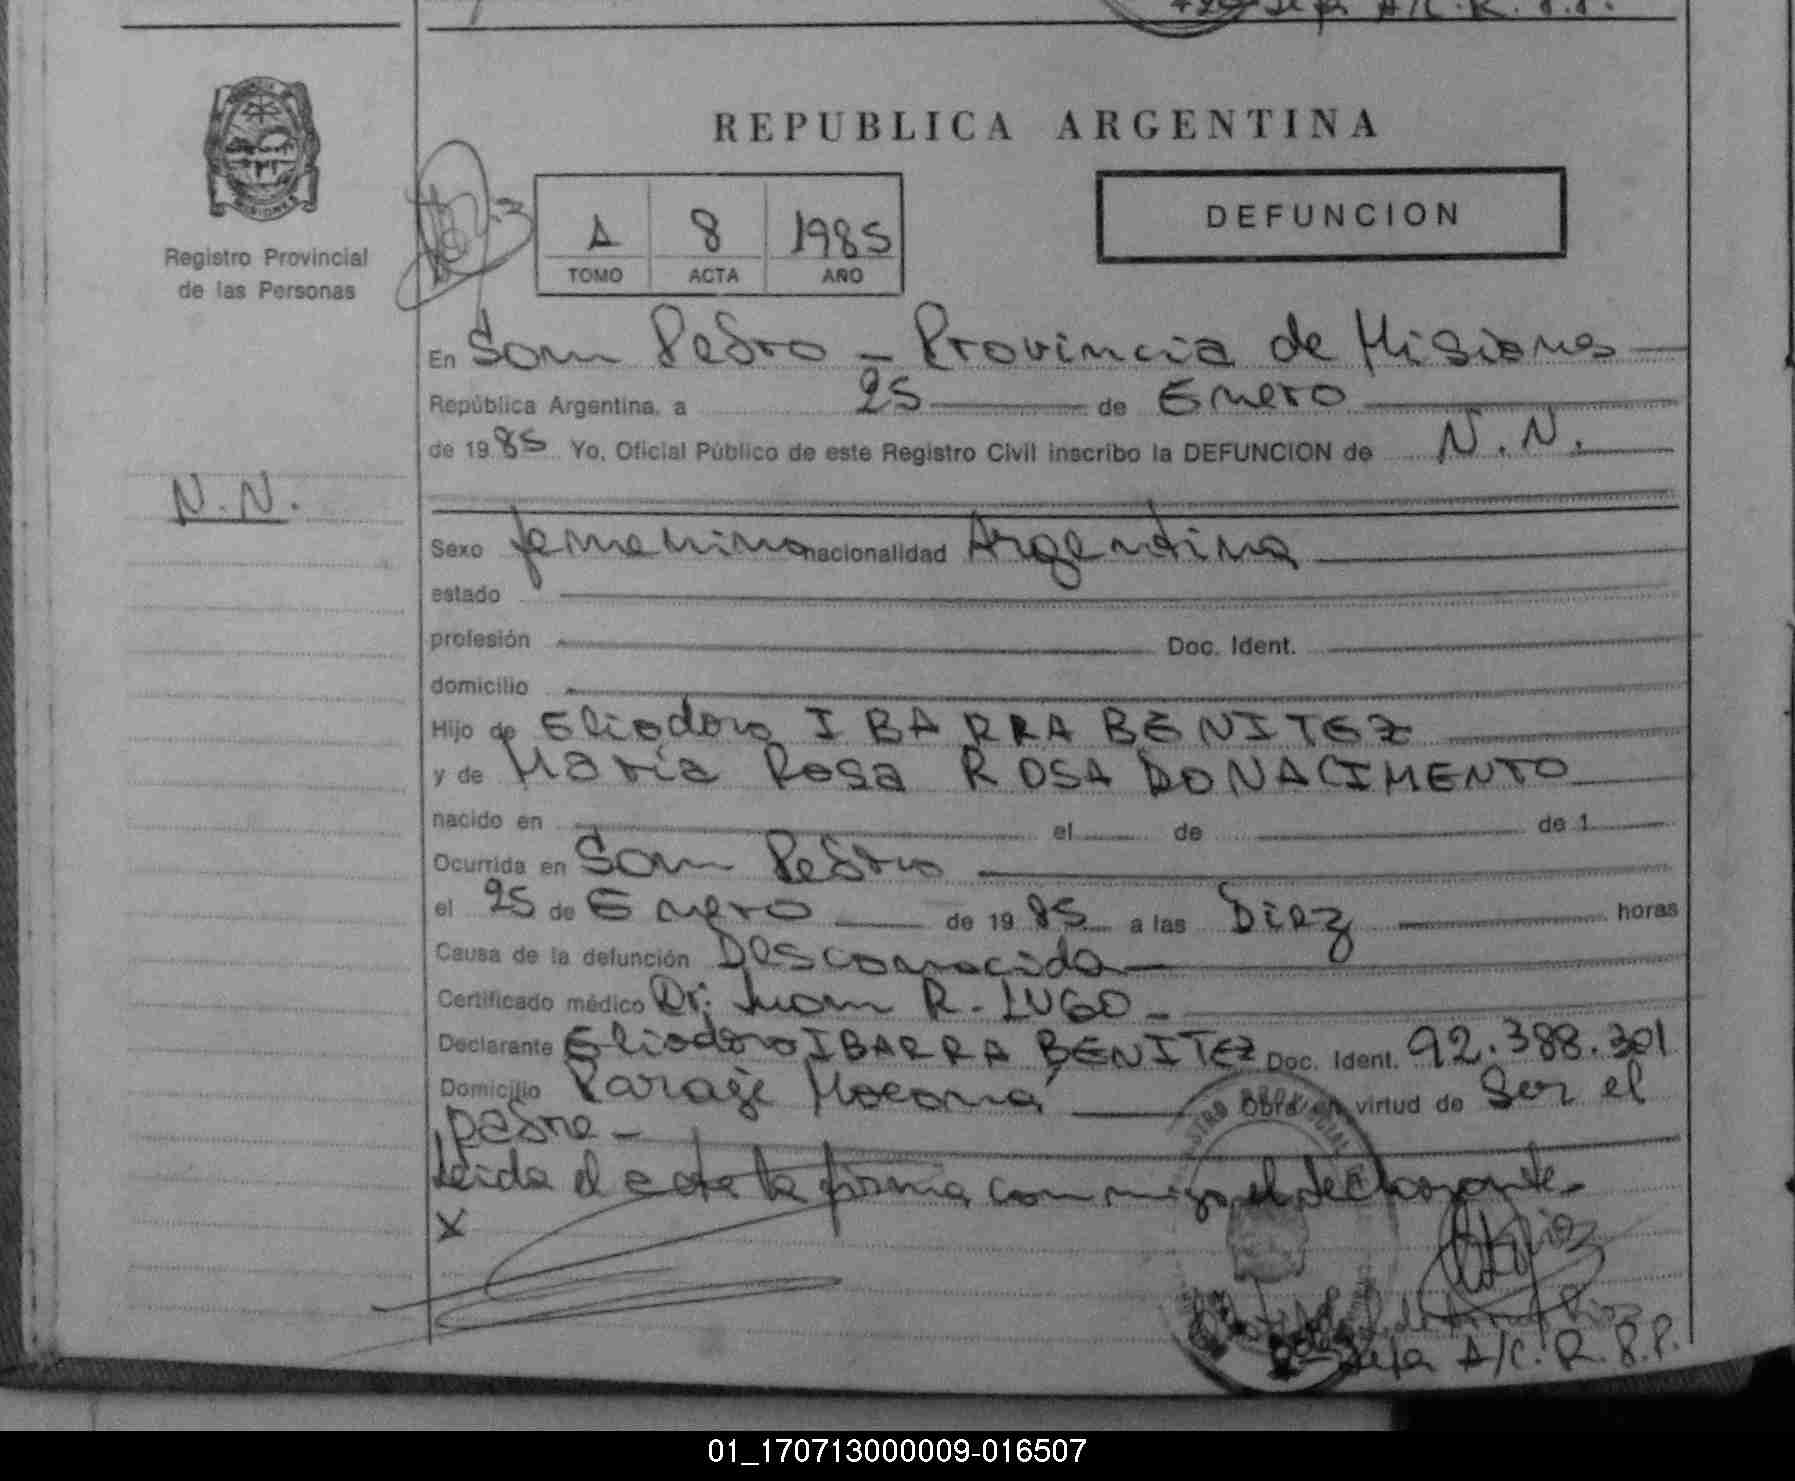 REPUBLICA ARGENTINA
DEFUNCION
MISIONES
Registro Provincial
de las Personas
A 8 1985
TOMO ACTA AÑO
En San Pedro - Provincia de Misiones
República Argentina, a 25 de Enero
de 1985 Yo, Oficial Público de este Registro Civil inscribo la DEFUNCION de N.N.
N.N.
Sexo femenino nacionalidad Argentina
estado
profesión Doc. Ident.
domicilio
Hijo de Eliodoro IBARRA BENITEZ
y de María Rosa ROSA DONACIMENTO
nacido en el de de 1
Ocurrida en San Pedro
el 25 de Enero de 1985 a las Diez horas
Causa de la defunción Desconocida
Certificado médico Dr: Juan R. LUGO -
Declarante Eliodoro IBARRA BENITEZ Doc. Ident. 92.388.301
Domicilio Paraje Moconá Obra en virtud de Ser el
padre -
Leida el acta la firma conmigo el declarante -
X
Jefa A/C. R. P. P.
01_170713000009-016507